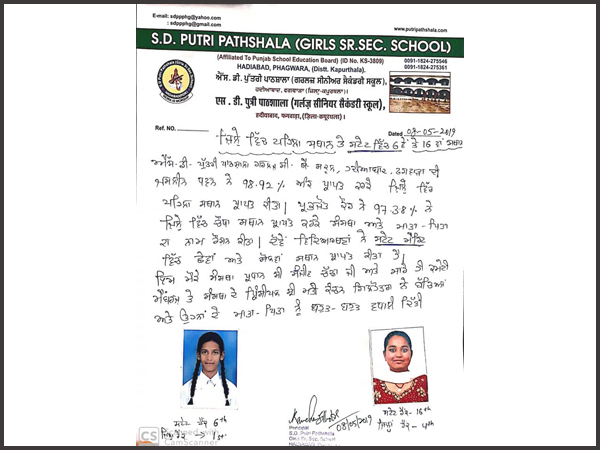 E-mail: sdppphg@yahoo.com
: sdpppgh@gmail.com
www.putripathshala.com
S.D. PUTRI PATHSHALA (GIRLS SR.SEC. SCHOOL)
(Affiliated To Punjab School Education Board) (ID No. KS-3809)
HADIABAD, PHAGWARA, (Distt. Kapurthala).
0091-1824-275546
0091-1824-262361
ਐਸ. ਡੀ. ਪੁੱਤਰੀ ਪਾਠਸ਼ਾਲਾ (ਗਰਲਜ਼ ਸੀਨੀਅਰ ਸੈਕੰਡਰੀ ਸਕੂਲ),
ਹਦੀਆਬਾਦ, ਫਗਵਾੜਾ (ਜ਼ਿਲ੍ਹਾ-ਕਪੂਰਥਲਾ)।
एस. डी. पुत्री पाठशाला (गर्लज़ सीनियर सैकंडरी स्कूल),
हदीयाबाद, फगवाड़ा, (ज़िला-कपूरथला)।
Ref. NO.
Dated 08-05-2019
ਜ਼ਿਲੇ ਵਿੱਚ ਪਹਿਲਾ ਸਥਾਨ ਤੇ ਸਟੇਟ ਵਿੱਚ 6 ਵੇਂ ਤੇ 16 ਵਾਂ ਸਥਾਨ
ਐਸ. ਡੀ. ਪੁੱਤਰੀ ਪਾਠਸ਼ਾਲਾ ਸਕੂਲ, ਹਦੀਆਬਾਦ, ਫਗਵਾੜਾ ਦੀ
ਨੇ 98.92% ਅੰਕ ਪ੍ਰਾਪਤ ਕਰਕੇ ਜ਼ਿਲੇ ਵਿੱਚ
ਪਹਿਲਾ ਸਥਾਨ ਪ੍ਰਾਪਤ ਕੀਤਾ। ਕੌਰ ਨੇ 97.38% ਨੇ
ਜ਼ਿਲੇ ਵਿੱਚ ਚੌਥਾ ਸਥਾਨ ਪ੍ਰਾਪਤ ਕਰਕੇ ਸੰਸਥਾ ਅਤੇ ਮਾਤਾ-ਪਿਤਾ
ਦਾ ਨਾਮ ਰੌਸ਼ਨ ਕੀਤਾ। ਦੋਵੇਂ ਵਿਦਿਆਰਥਣਾਂ ਨੇ ਸਟੇਟ ਮੈਰਿਟ
ਵਿੱਚ ਛੇਵਾਂ ਅਤੇ ਸੋਲਵਾਂ ਸਥਾਨ ਪ੍ਰਾਪਤ ਕੀਤਾ ਹੈ।
ਇਸ ਮੌਕੇ ਸੰਸਥਾ ਪ੍ਰਧਾਨ ਸ਼੍ਰੀ ਜੀ ਅਤੇ ਸਾਰੇ ਹੀ ਕਮੇਟੀ
ਮੈਂਬਰਜ਼ ਤੇ ਸੰਸਥਾ ਦੇ ਪ੍ਰਿੰਸੀਪਲ ਨੇ ਬੱਚਿਆਂ
ਅਤੇ ਉਹਨਾਂ ਦੇ ਮਾਤਾ-ਪਿਤਾ ਨੂੰ ਬਹੁਤ-ਬਹੁਤ ਵਧਾਈ ਦਿੱਤੀ
ਸਟੇਟ ਰੈਂਕ 6th
ਜ਼ਿਲ੍ਹਾ ਰੈਂਕ → 1st
08/05/2019
Principal
S.D. Putri Pathshala
Girls Sr. Sec. School
ਸਟੇਟ ਰੈਂਕ - 16th
ਜ਼ਿਲ੍ਹਾ ਰੈਂਕ - 4th
CS
Scanned with
CamScanner